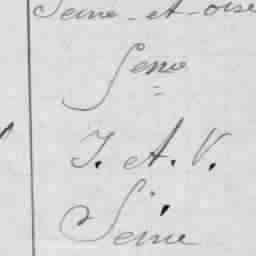 Seine-et-oise
Seine
I. et V.
Seine